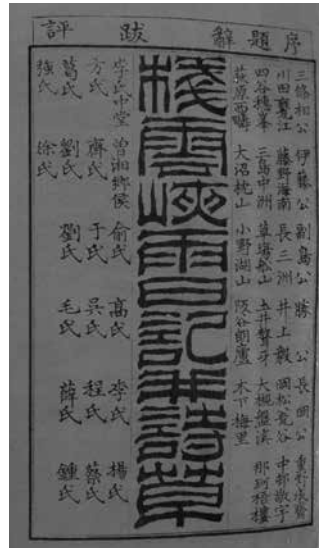 序題辭 跋 評
三條相公 伊藤公 副島公 勝公 長岡公 重野成齋
川田甕江 藤野海南 長三洲 井上毅 岡松甕谷 中村敬宇
四谷穗峯 三島中洲 草場船山 土井聱牙 大槻盤溪 那珂梧樓
萩原西疇 大沼枕山 小野湖山 阪谷朗廬 木下梅里
棧雲峽雨日記并詩草
李氏中堂 曾湘鄉侯 俞氏 高氏 李氏 楊氏
方氏 齊氏 于氏 吳氏 程氏 蔡氏
葛氏 劉氏 劉氏 毛氏 薛氏 鍾氏
強氏 徐氏